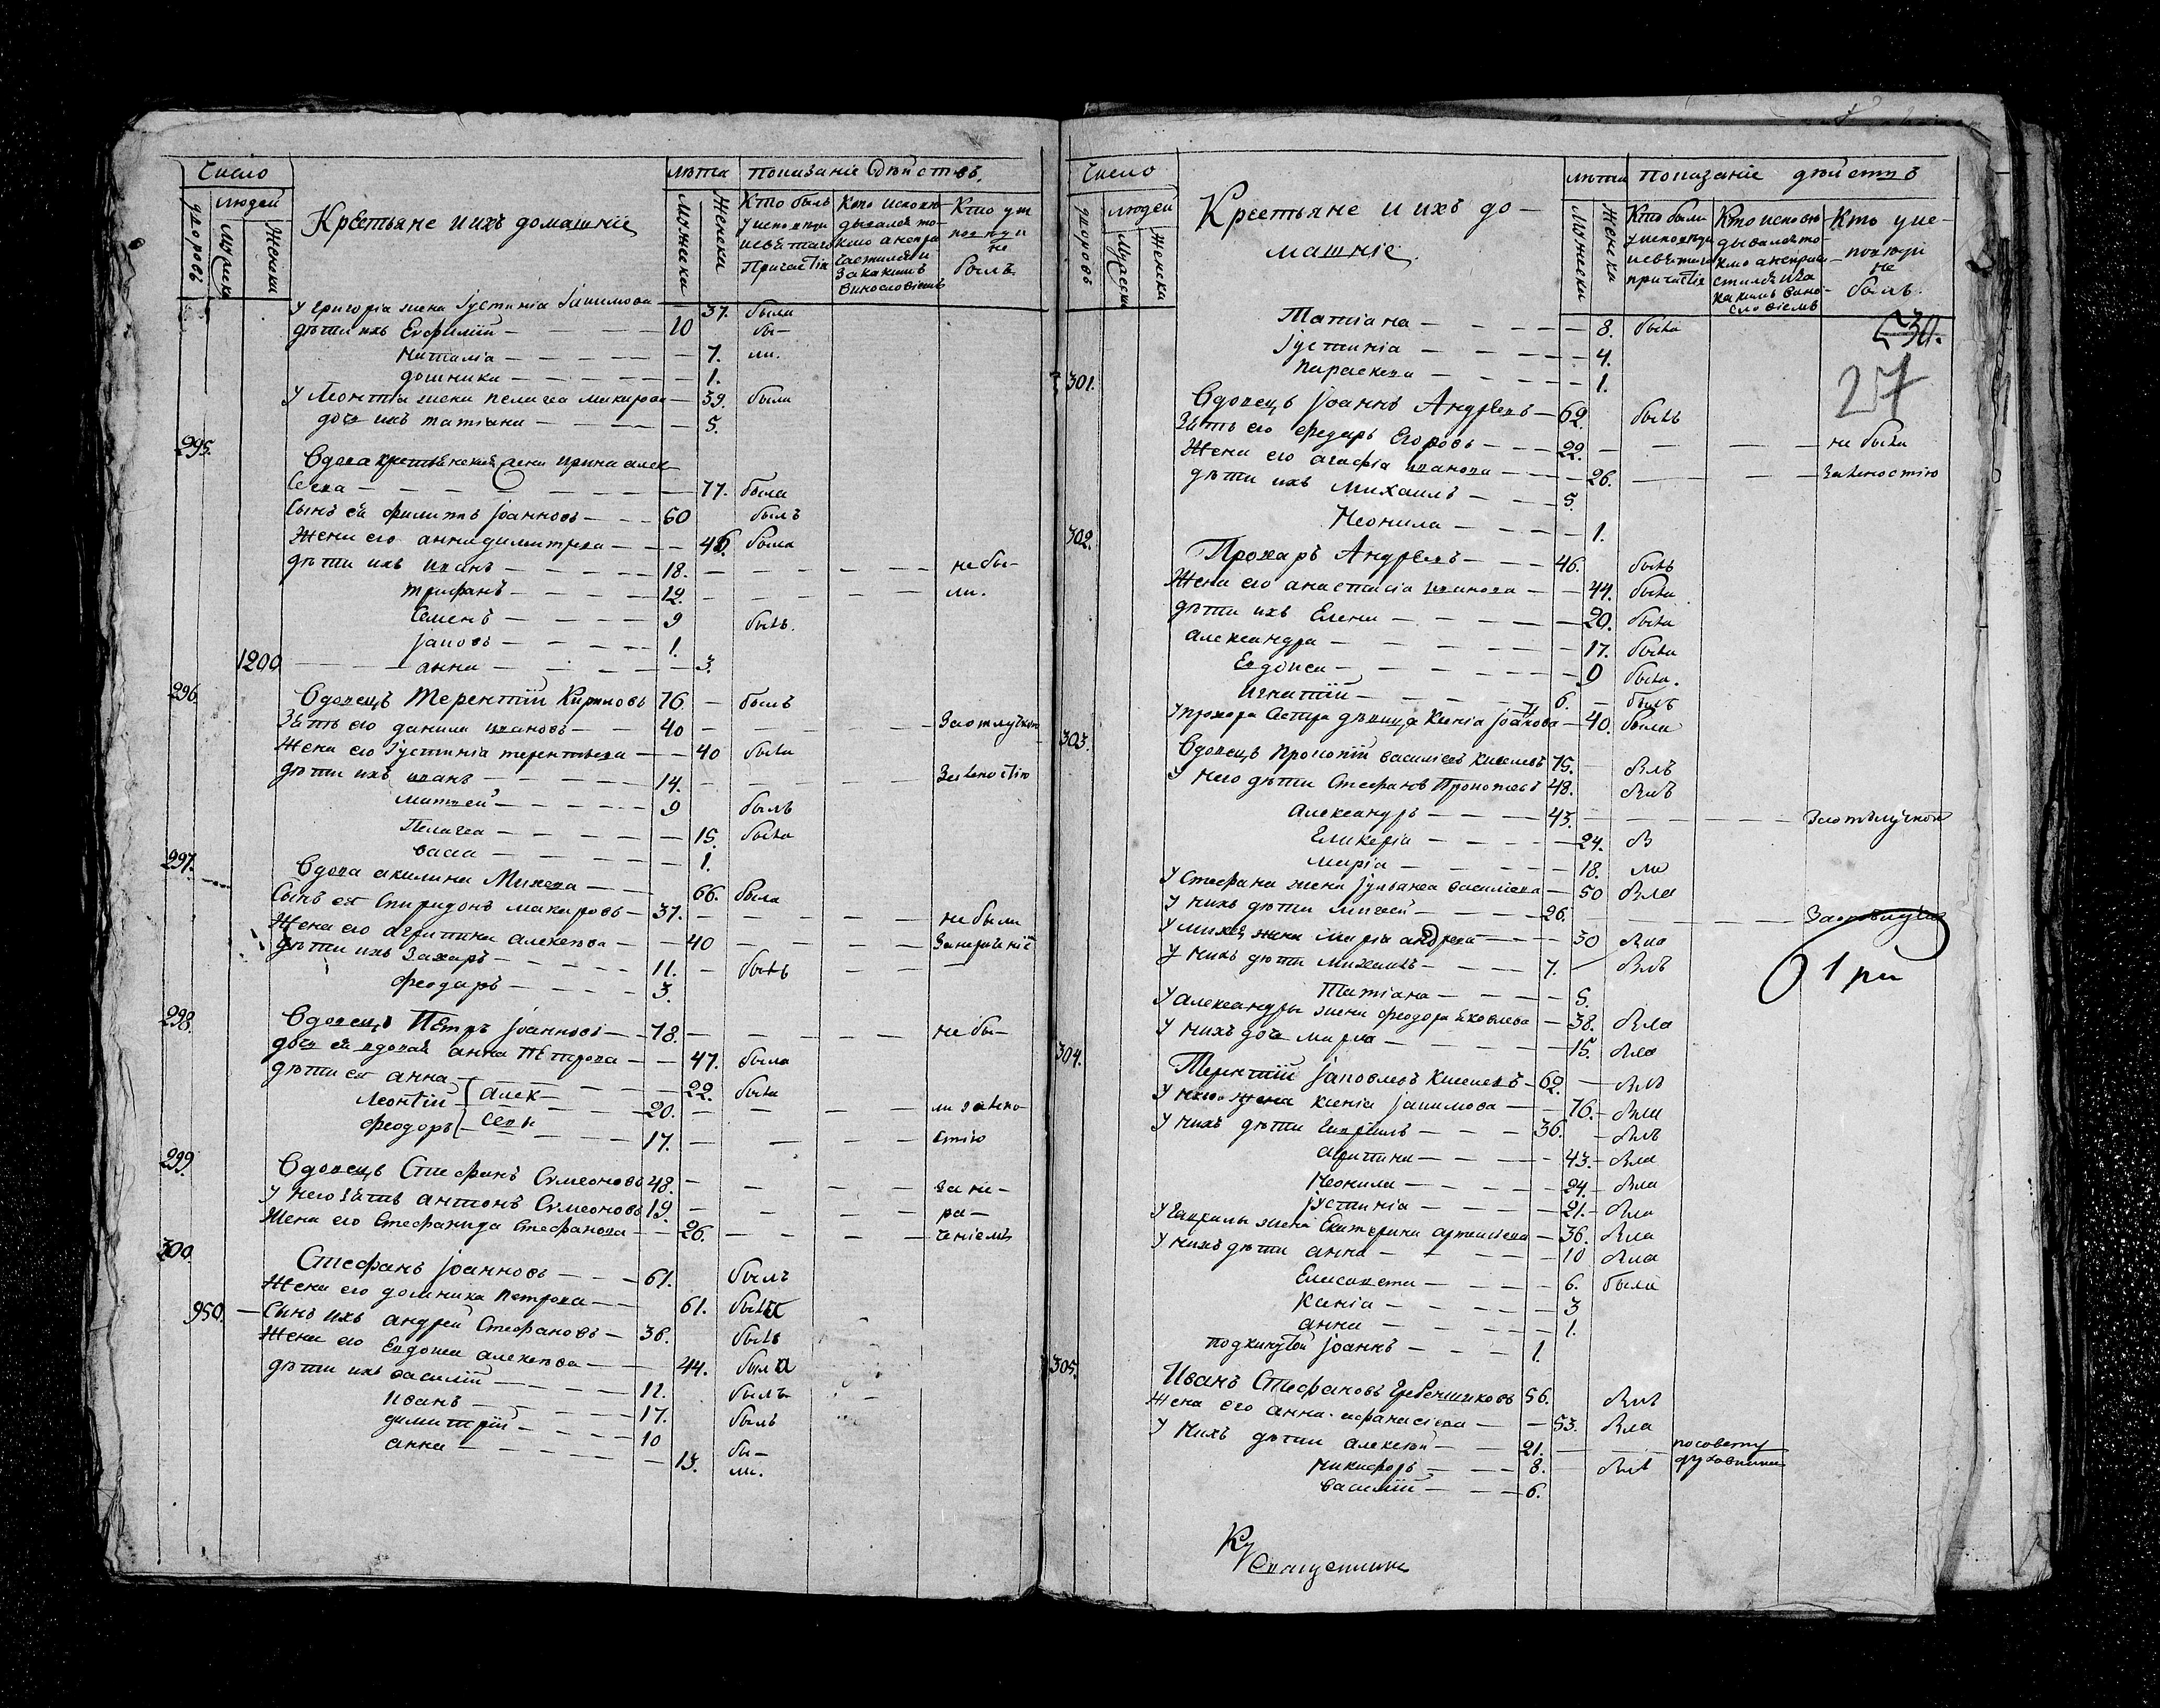 Число
людей
дворовъ
Мужеска
Женска
Крестьяне и ихъ домашніе
лѣта
Мужеска
Женска
показаніе дѣйствъ.
Кто былъ у исповѣди и святаго Причастія
Кто исповѣдывался токмо а не причастился и за какимъ винословіемъ
Кто у исповѣди не былъ
У Григорія жена Іустинія Іакимова — 37. была
дѣти ихъ Евфимій — 10 бы-
Наталіа — 7. ли.
домника — 1.
У Леонтіа жена пелагеа макарова — 39. была
дочь ихъ татіана — 5.
295.
Вдова крестьянская жена ирина алек
сеева — 77. была
Сынъ ея филиппъ Іоанновъ — 60 былъ
Жена его анна димитрева — 46. была
дѣти ихъ иванъ — 18. — не бы-
трифанъ — 12. — ли.
Семенъ — 9 былъ.
Іаковъ — 1.
1200 — анна — 3.
296. Вдовецъ Терентій Кириловъ 76. — былъ
Зять его данила ивановъ — 40 — За отлучкою
Жена его Іустиніа терентьева — 40 была
дѣти ихъ иванъ — 14. — За леностію
матвей — 9 былъ
Пелагеа — 15. была
васса — 1.
297. Вдова акилина Михеева — 66. была
Сынъ ея Спиридонъ макаровъ — 37. — не были
Жена его агрипина алексеева — 40 — За нераченіе
дѣти ихъ Захаръ — 11. — былъ
феодаръ — 3.
298. Вдовецъ Пётръ Іоанновъ — 78. — не бы-
дочь ея вдовая анна Петрова — 47. была
дѣти ея анна — 22. была
Леонтій — алек- 20. — ли за лено-
феодоръ — сеевы 17. — стію
299. Вдовецъ Стефанъ Симеоновъ 48. — за не-
У него зять антонъ Симеоновъ 19. — ра-
Жена его Стефанида Стефанова — 26. — ченіемъ
300. Стефанъ Іоанновъ — 61. былъ
Жена его домника петрова — 61. была
950. — Сынъ ихъ андрей Стефановъ — 36. былъ
Жена его Евдокеа алексеева — 44. была
дѣти ихъ василій — 12. былъ
Иванъ — 17. былъ
димитрій — 10 бы-
анна — 13. ли.
Число
людей
дворовъ
Мужеска
Женска
Крестьяне и ихъ до-
машніе.
лѣта
Мужеска
Женска
показаніе дѣйствъ
Кто были у исповѣди и святаго причастія
Кто исповѣдывался токмо а не причастился и за какимъ винословіемъ
Кто у исповѣди не былъ.
Татіана — 8. была
Іустиніа — 4.
параскева — 1.
230.
27
301. Вдовецъ Іоаннъ Андреевъ — 62. былъ
Зять его федаръ Егоровъ — 22. — не были
Жена его агафіа иванова — 26. — За леностію
дѣти ихъ Михаилъ — 5.
Неонила — 1.
302. Прохаръ Андреевъ — 46. былъ
Жена его анастасіа иванова — 44. была
дѣти ихъ Елена — 20. была
александра — 17. была
Евдокеа — 9 была.
Игнатій — 6. — былъ
У прохора сестра дѣвица Ксеніа Іоанова — 40. была
303. Вдовецъ прокопій василіевъ киселевъ 75. былъ
У него дѣти Стефанъ Прокопьевъ 48. былъ
Александръ — 43. — За отлучкой
Гликеріа — 24. бы
маріа — 18. ли
У Стефана жена Іульанеа василіева — 50 была
У нихъ дѣти михей — 26. — За отлучкой
У михея жена Маріа андреева — 30 была
У нихъ дѣти михаилъ — 7. былъ
01 ри
Татіана — 5.
У александры жена феодора Яковлева — 38. была
У нихъ дочь марѳа — 15. была
304. Терентій Іаковлевъ Киселевъ — 62. — былъ
У него жена ксеніа Іакимова — 76. — была
У нихъ дѣти Гаврилъ — 36. — былъ
агрипина — 43. — была
Неонила — 24. — была
Іустиніа — 21. — была
У Гаврилы жена Екатерина артемиева — 36. была
У нихъ дѣти анна — 10 была
Елисавета — 6. была
Ксеніа — 3
анна — 1.
подкинутой Іоаннъ — 1.
305. Иванъ Стефановъ Гребенщиковъ 56. былъ
Жена его анна афанасіева — 53. была
У нихъ дѣти алексей — 21. — по совету
никифоръ — 8. былъ духовника
василій — 6.